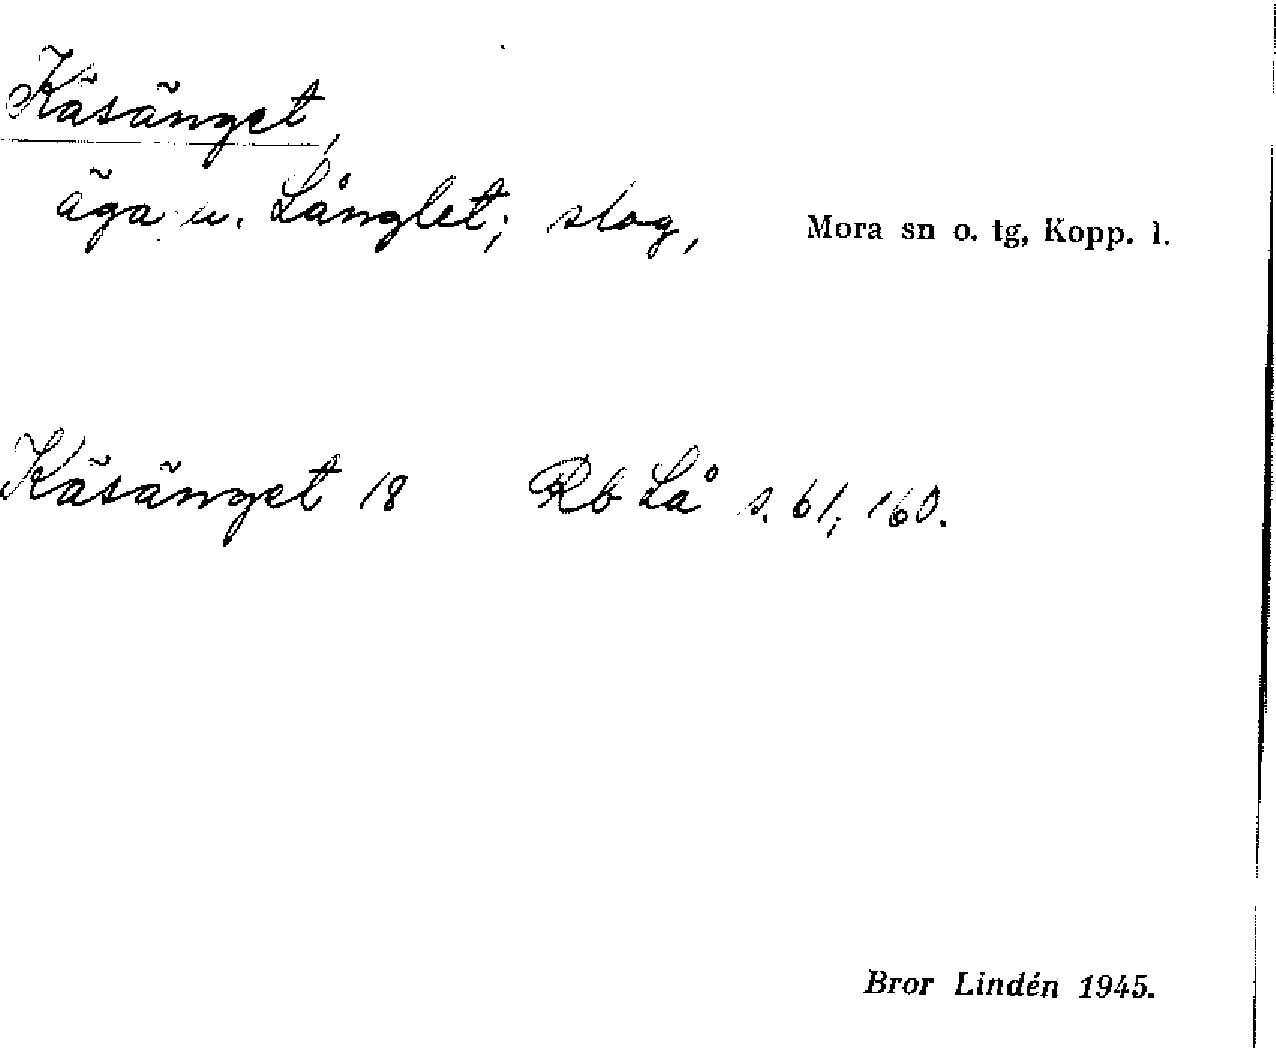 Käsänget,
äga u. Långlet; slog, Mora sn o. tg, Kopp. l.
Käsänget 18 Rb Lå s. 61, 160.
Bror Lindén 1945.